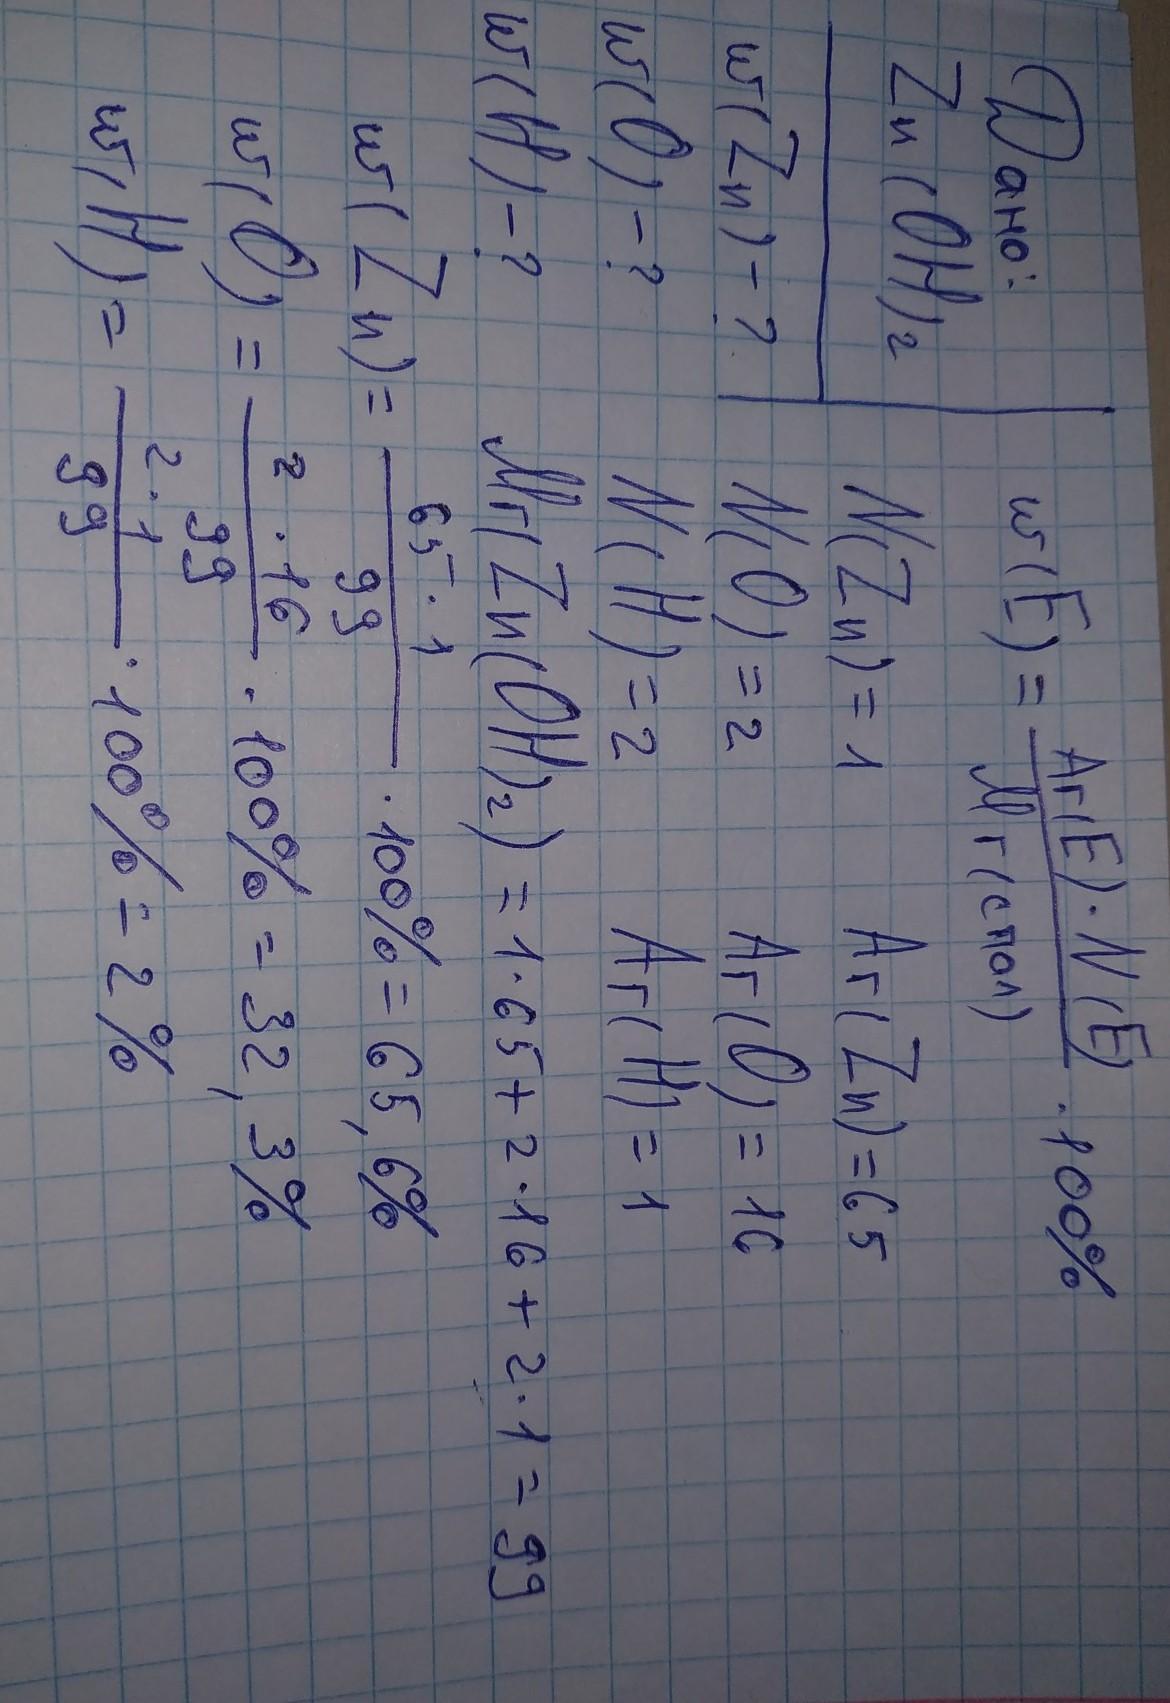 Дано:
Zn(OH)2
w(Zn)-?
w(O)-?
w(H)-?
w(E) = Ar(E)·N(E) / Mr(спол) · 100%
N(Zn)=1 Ar(Zn)=65
N(O)=2 Ar(O)=16
N(H)=2 Ar(H)=1
Mr(Zn(OH)2) = 1·65+2·16+2·1=99
w(Zn)= 65·1 / 99 · 100% = 65,6%
w(O) = 2·16 / 99 · 100% = 32,3%
w(H) = 2·1 / 99 · 100% = 2%